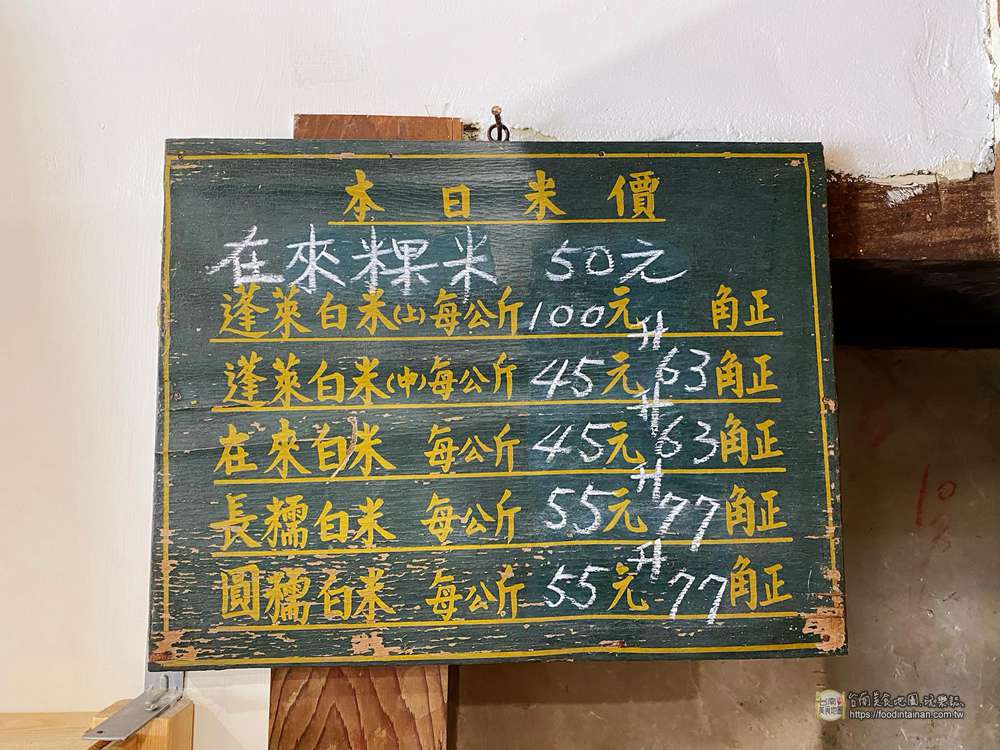 本日米價
在來粿米 50元
蓬萊白米(上)每公斤100元 角正
升
蓬萊白米(中)每公斤45元63角正
升
在來白米 每公斤45元63角正
升
長糯白米 每公斤55元77角正
升
圓糯白米 每公斤55元77角正
台南美食地圖
https://foodintainan.com.tw